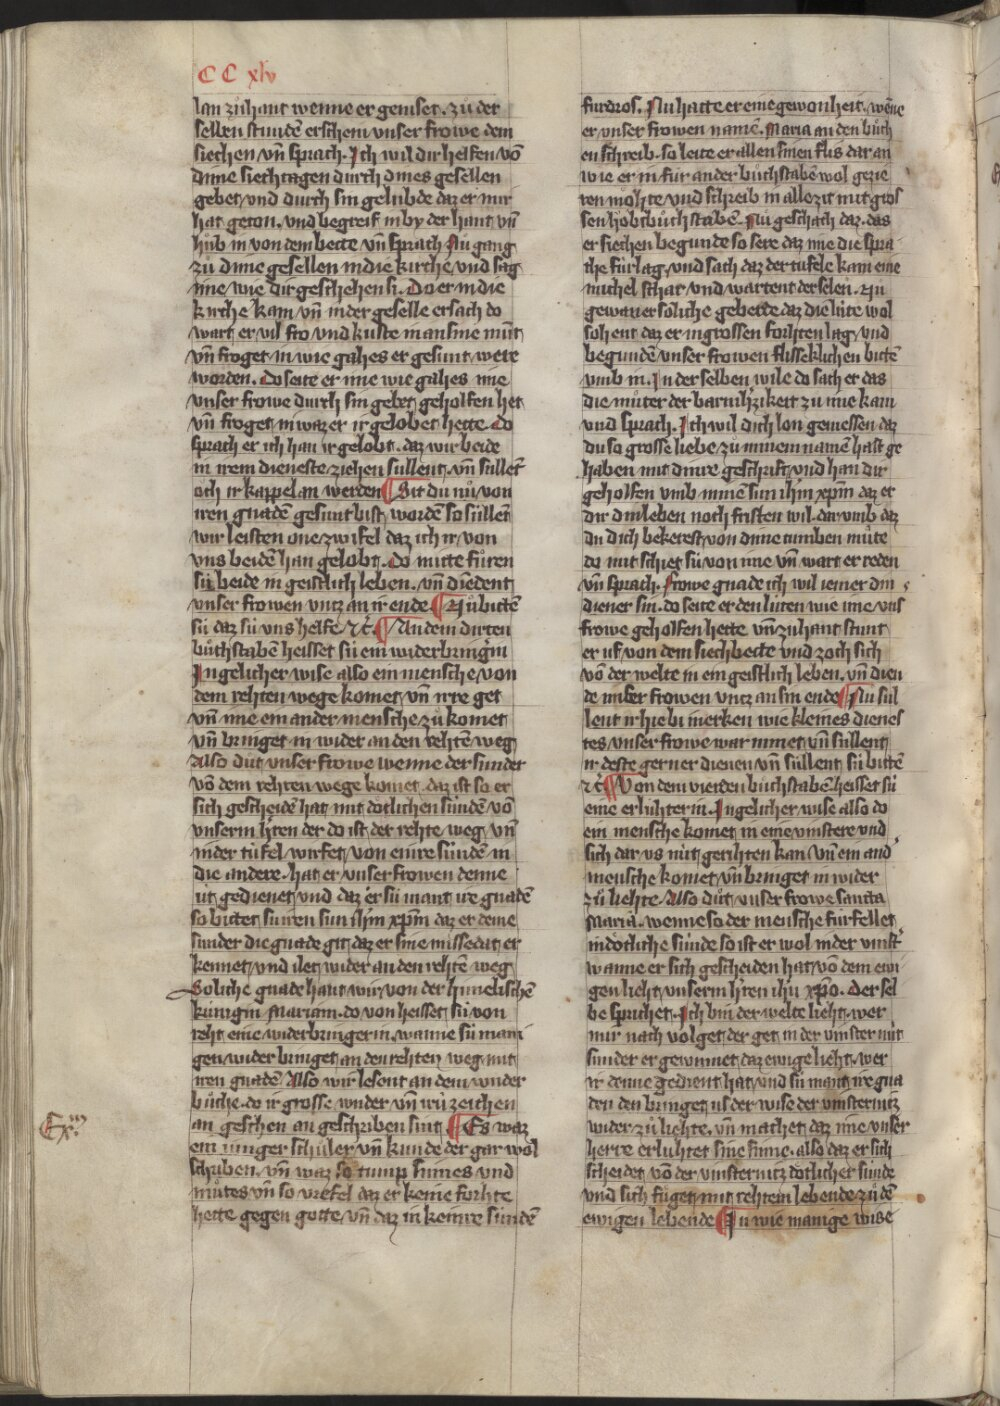 CC xlv
lan zůhant wenne er geniset. zů der
selben stunden erschein vnser frowe dem
siechen vn̄ sprach. Ich wil dir helfen vō
dinne siechtagen durch dines gesellen
gebet vnd durch sin gelubde daz er mir
hat geton. vnd begreif in by der hant vn̄
hůb in von dem bette vn̄ sprach Nu gang
zů dinē gesellen in die kirche vnd sag
ime wie dir geschehen si. Do er in die
kirche kam vn̄ in der geselle ersach do
wart er vil fro vnd kuste in an sinē mūt
vn̄ froget in wie gahes er gesunt were
worden. Do seite er ime wie gahes ime
vnser frowe durch sin gebet geholfen het
vn̄ froget in waz er ir gelobet hette. Do
sprach er ich han ir gelobt. daz wir beide
in irem dieneste ziehen sullent vn̄ sullēt
och ir kappelan werden Sit du nů von
iren gnadē gesunt bist wordē so sullēt
wir leisten one zwifel daz ich ir von
vns beidē han gelobt. Do mitte fůren
sü beide in geistlich leben. vn̄ diēdent
vnser frowen vntz an ir ende Nů bittē
sü daz sü vns helfe ꝛc̄. An dem dirten
bůchstabē heisset sü ein widerbringīn
In gelicher wise also ein mensche von
dem rehten wege komet vn̄ irre get
vn̄ ime ein ander mensche zů komet
vn̄ bringet in wider an den rehtē weg
Also důt vnser frowe wenne der sunder
vō dem rehten wege komet. daz ist so er
sich gescheidē hat mit dotlichen sündē vō
vnserm h̄ren der do ist der rehte weg vn̄
in der tüfel wirfet von einre sündē in
die andere. hat er vnser frowen denne
üt gedienet vnd daz er sü mant ire gnadē
so bittet sü iren sun ih̄m xp̄m daz er deme
sunder die gnade git daz er sine missedat er
kennet vnd ilet wider an den rehtē weg
Soliche gnade hant wir von der himelischē
künigin Mariam. do von heisset sü von
reht eine widerbringerin. wanne sü mani
gen wider bringet an den rehten weg mit
iren gnadē Also wir lesent an dem wnder
bůche. do ir grosse wnder vn̄ ir zeichen
an geschen an geschriben sint Es waz
ein iunger schůler vn̄ kunde der gar wol
schriben. vn̄ waz so tump sinnes vnd
můtes vn̄ so vrefel daz er keine forhte
hette gegen gotte vn̄ daz in keinre sundē
Exm̄
furdros. Nu hatte er eine gewonheit. wēne
er vnser frowen namē. Maria an den bůch
en schreib. so leite er allen sinen flis dar an
wie er in für ander bůchstabē wol gezie
ren möhte vnd schreib in alle zit mit gros
sen hobtbůchstabē. Nu geschach daz. das
er siechen begunde so sere daz ime die spra
che fürlag. vnd sach daz der tüfele kam eine
michel schar vnd wartent der selen. Nu
gewan er soliche geberde daz die lüte wol
sohent daz er in grossen forhten lag. vnd
begundē vnser frowen flisseklichen bittē
vmb in. In der selben wile do sach er das
die můter der barmh̄zikeit zu ime kam
vnd sprach. Ich wil dich lon geniessen daz
du so grosse liebe zů minem namē hast ge
haben mit dinre geschrift vnd han dir
geholfen vmb minē sun ih̄m xp̄m daz er
dir din leben noch fristen wil. dar vmb daz
du dich bekerest von dinē tumben můte
do mit schiet sü von ime vn̄ wart er reden
vn̄ sprach. Frowe gnade ich wil iemer din
diener sin. do seite er den lüten wie ime vns
frowe geholfen hette vn̄ zuhant stunt
er uf von dem siechbette vnd zoch sich
vō der welte in ein geistlich leben. vn̄ dien
de vnser frowen vntz an sin ende Nu sul
lent ir hie bi merken wie kleines dienes
tes vnser frowe war nimet vn̄ sullent
ir deste gerner dienen vn̄ süllent sü bittē
ꝛc̄ Von dem vierden bůchstabē heisset sü
eine erlühterin. In gelicher wise also do
ein mensche komet in eine vinstere vnd
sich dar vs nüt gerihten kan vn̄ ein and
mensche komet vn̄ bringet in wider
zů liehte. Also důt vnser frowe sancta
Maria. wenne so der mensche fürfellet
in dotliche sünde so ist er wol in der vinst
wanne er sich gescheiden hat vō dem ewi
gen lieht vnserm h̄ren ih̄u xp̄o. der sel
be sprichet. Ich bin der welte lieht. wer
mir nach volget der get in der vinster nüt
sunder er gewinnet daz ewige lieht. wer
ir denne gedient hat vnd sü mant ire gna
den den bringet us der wise der vinsternitz
wider zů liehte. vn̄ machet daz ime vnser
herre erlühtet sine sinne. also daz er sich
scheidet vō der vinsternitz dotlicher sünde
vnd sich füget mit rehtem lebende zů dē
ewigen lebende In wie manige wise